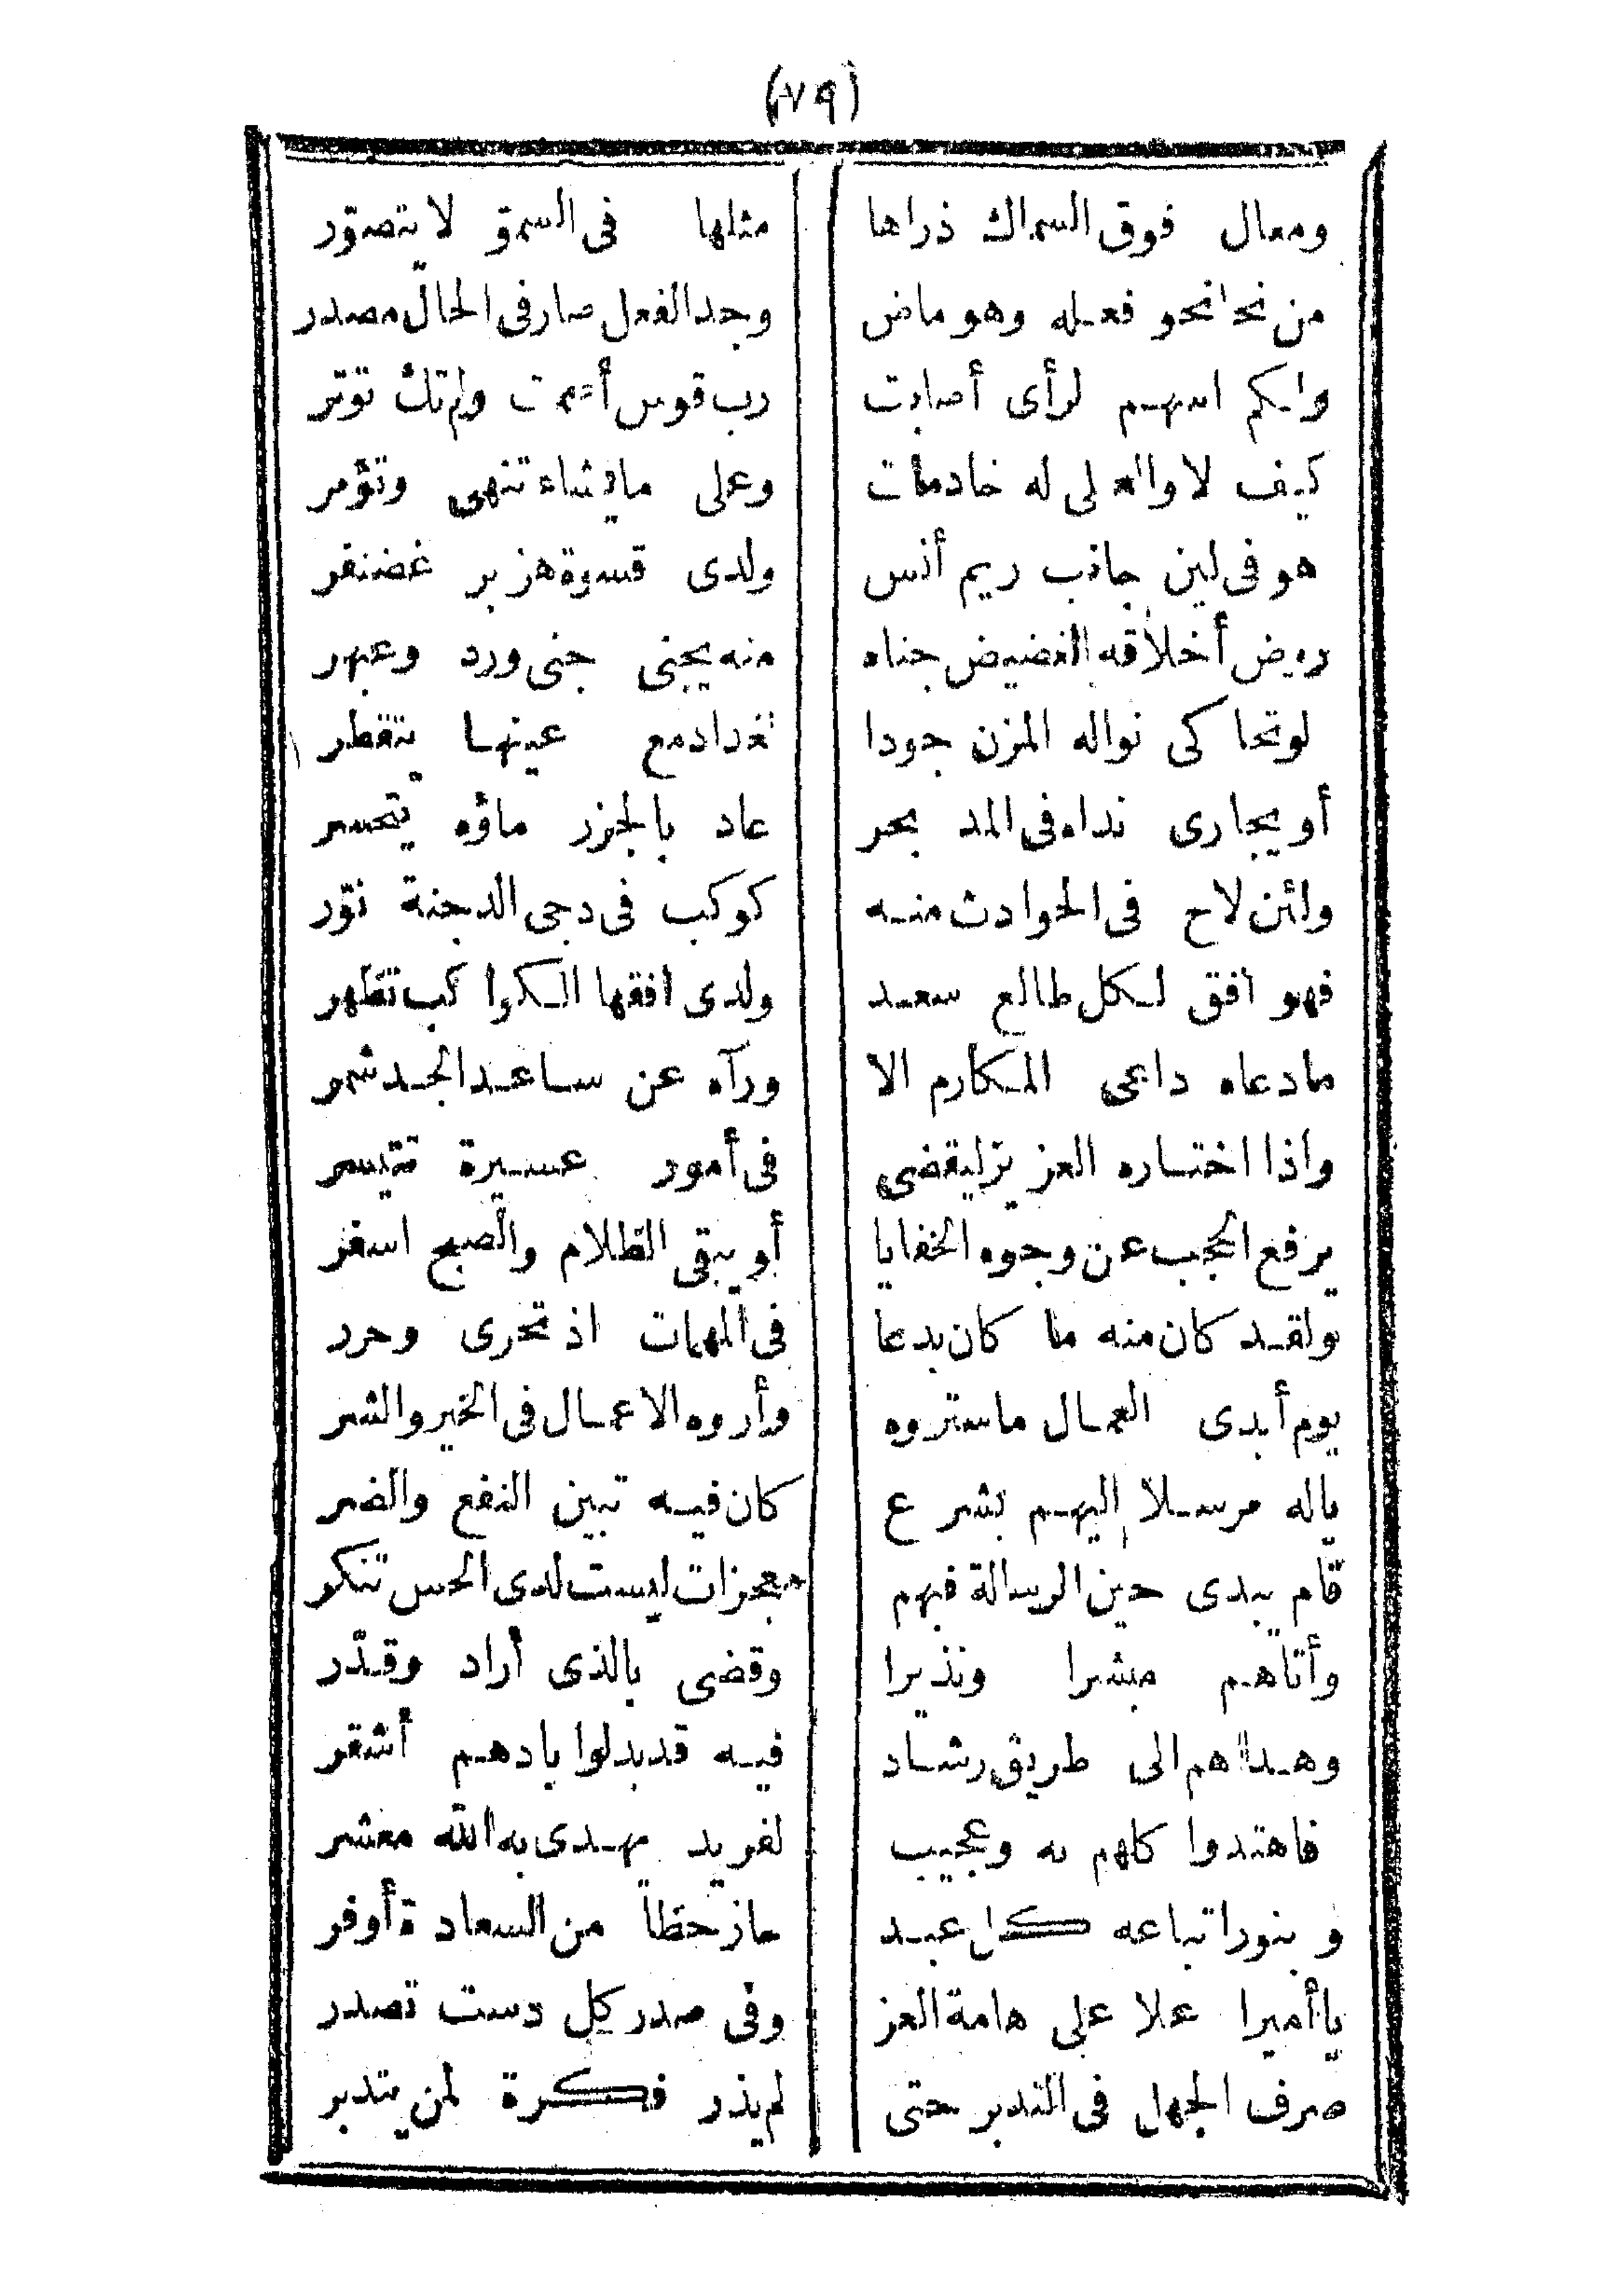 (٧٩)
ومعال فوق السماك ذراها مثلها فى السموّ لا يتصوّر
من نحا نحو فعله وهو ماض وجد الفعل صار فى الحال مصدر
ولكم اسهم لرأى أصابت رب قوس أصمت ولم تك توتر
كيف لا والعلى له خادمات وعلى مايشاء تنهى وتؤمر
هو فى لين جانب ريم أنس ولدى قسوة هزبر غضنفر
روض أخلاقه الغضيض جناه منه يجنى جنى ورد وعبهر
لو تحاكى نواله المزن جودا لغدا دمع عينها يتقطر
أو يجارى نداه فى المد بحر عاد بالجزر ماؤه يتحسر
ولئن لاح فى الحوادث منه كوكب فى دجى الدجنة نوّر
فهو افق لكل طالع سعد ولدى افقها الكواكب تظهر
مادعاه داعى المكارم الا ورآه عن ساعد الجد شمر
واذا اختاره العزيز ليقضى فى أمور عسيرة تتيسر
يرفع الحجب عن وجوه الخفايا أو يبقى الظلام والصبح اسفر
ولقد كان منه ما كان بدعا فى المهمات اذ تحرى وحرر
يوم أبدى العمال ماستروه وأروه الاعمال فى الخير والشر
ياله مرسلا اليهم بشرع كان فيه تبين النفع والضر
قام يبدى حين الرسالة فيهم معجزات ليست لدى الحس تنكر
وأتاهم مبشرا ونذيرا وقضى بالذى أراد وقدّر
وهداهم الى طريق رشاد فيه قد بدلوا بادهم أشقر
فاهتدوا كلهم به وعجيب لفريد يهدى به الله معشر
وبنور اتباعه كل عبد حاز حظا من السعادة أوفر
يا أميرا علا على هامة العز وفى صدر كل دست تصدر
صرف الجهل فى التدبر حتى لم يذر فكرة لمن يتدبر